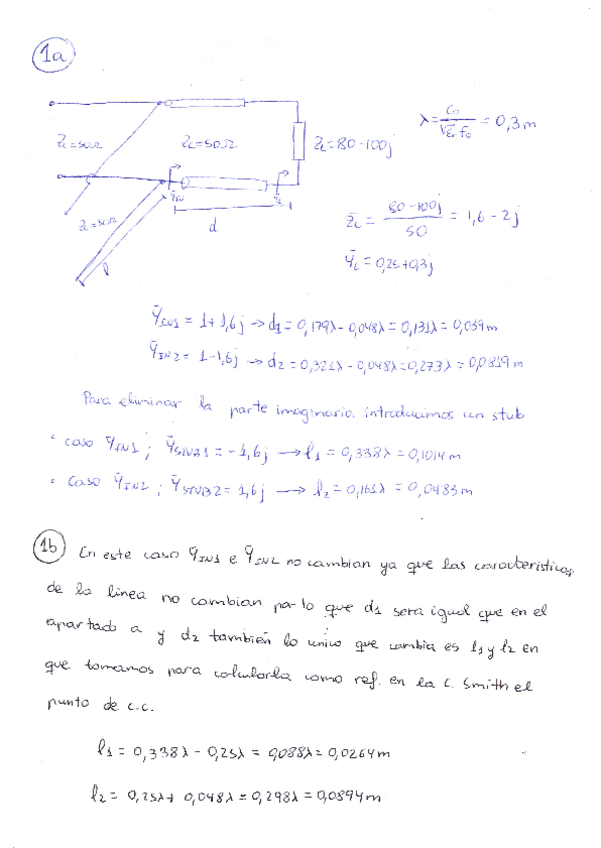 1a
λ = C₀ / √εr f₀ = 0,3 m
Z̄c = 50Ω
Z̄c = 50Ω
Z̄L = 80 - 100j
Z̄c = 50Ω
ȲIN
ȲL
d
l
Z̄L = 80 - 100j / 50 = 1,6 - 2j
ȲL = 0,25 + 0,3j
ȲIN1 = 1 + 1,6j → d1 = 0,179λ - 0,048λ = 0,131λ = 0,039 m
ȲIN2 = 1 - 1,6j → d2 = 0,321λ - 0,048λ = 0,273λ = 0,0819 m
Para eliminar la parte imaginaria introducimos un stub
· caso ȲIN1 ; ȲSTUB1 = -1,6j → l1 = 0,338λ = 0,1014 m
· Caso ȲIN2 ; ȲSTUB2 = 1,6j → l2 = 0,161λ = 0,0483 m
1b En este caso ȲIN1 e ȲIN2 no cambian ya que las caracteristicas
de la linea no cambian por lo que d1 sera igual que en el
apartado a y d2 también lo unico que cambia es l1 y l2 en
que tomamos para calcularla como ref. en la C. Smith el
punto de c.c.
l1 = 0,338λ - 0,25λ = 0,088λ = 0,0264 m
l2 = 0,25λ + 0,048λ = 0,298λ = 0,0894 m